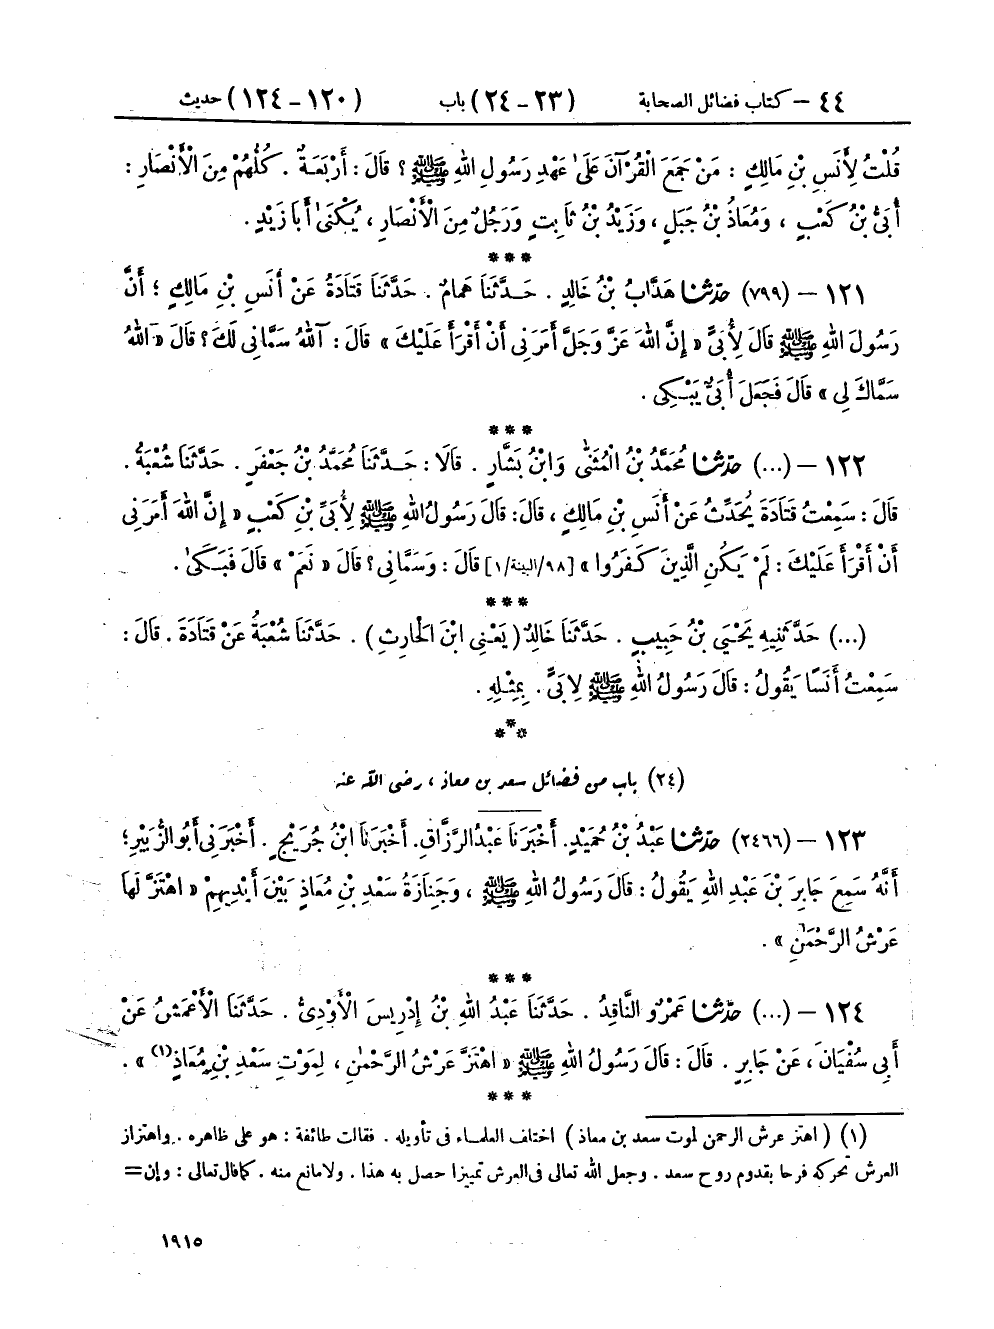 ٤٤ – كتاب فضائل الصحابة (٢٣-٢٤) باب (١٢٠-١٢٤) حديث
قُلْتُ لِأَنَسِ بْنِ مَالِكٍ : مَنْ جَمَعَ الْقُرْآنَ عَلَىٰ عَهْدِ رَسُولِ اللهِ ﷺ ؟ قَالَ : أَرْبَعَةٌ . كُلُّهُمْ مِنَ الْأَنْصَارِ :
أُبَيُّ بْنُ كَعْبٍ ، وَمُعَاذُ بْنُ جَبَلٍ ، وَزَيْدُ بْنُ ثَابِتٍ وَرَجُلٌ مِنَ الْأَنْصَارِ ، يُكْنَىٰ أَبَا زَيْدٍ .
***
١٢١ – (٧٩٩) حدّثنا هَدَّابُ بْنُ خَالِدٍ . حَدَّثَنَا هَمَّامٌ . حَدَّثَنَا قَتَادَةُ عَنْ أَنَسِ بْنِ مَالِكٍ ؛ أَنَّ
رَسُولَ اللهِ ﷺ قَالَ لِأُبَيٍّ « إِنَّ اللهَ عَزَّ وَجَلَّ أَمَرَنِي أَنْ أَقْرَأَ عَلَيْكَ » قَالَ : آللهُ سَمَّانِي لَكَ ؟ قَالَ « اللهُ
سَمَّاكَ لِي » قَالَ فَجَعَلَ أُبَيٌّ يَبْكِي .
***
١٢٢ – (...) حدّثنا مُحَمَّدُ بْنُ الْمُثَنَّىٰ وَابْنُ بَشَّارٍ . قَالَا : حَدَّثَنَا مُحَمَّدُ بْنُ جَعْفَرٍ . حَدَّثَنَا شُعْبَةُ .
قَالَ : سَمِعْتُ قَتَادَةَ يُحَدِّثُ عَنْ أَنَسِ بْنِ مَالِكٍ ، قَالَ : قَالَ رَسُولُ اللهِ ﷺ لِأُبَيِّ بْنِ كَعْبٍ « إِنَّ اللهَ أَمَرَنِي
أَنْ أَقْرَأَ عَلَيْكَ : لَمْ يَكُنِ الَّذِينَ كَفَرُوا » [٩٨/البينة/١] قَالَ : وَسَمَّانِي ؟ قَالَ « نَعَمْ » قَالَ فَبَكَىٰ .
***
(...) حَدَّثَنِيهِ يَحْيَىٰ بْنُ حَبِيبٍ . حَدَّثَنَا خَالِدٌ ( يَعْنِي ابْنَ الْحَارِثِ ) . حَدَّثَنَا شُعْبَةُ عَنْ قَتَادَةَ . قَالَ :
سَمِعْتُ أَنَسًا يَقُولُ : قَالَ رَسُولُ اللهِ ﷺ لِأُبَيٍّ . بِمِثْلِهِ .
***
(٢٤) باب من فضائل سعد بن معاذ ، رضى الله عنه
١٢٣ – (٢٤٦٦) حدّثنا عَبْدُ بْنُ حُمَيْدٍ . أَخْبَرَنَا عَبْدُ الرَّزَّاقِ . أَخْبَرَنَا ابْنُ جُرَيْجٍ . أَخْبَرَنِي أَبُو الزُّبَيْرِ ؛
أَنَّهُ سَمِعَ جَابِرَ بْنَ عَبْدِ اللهِ يَقُولُ : قَالَ رَسُولُ اللهِ ﷺ ، وَجَنَازَةُ سَعْدِ بْنِ مُعَاذٍ بَيْنَ أَيْدِيهِمْ « اهْتَزَّ لَهَا
عَرْشُ الرَّحْمَٰنِ » .
***
١٢٤ – (...) حدّثنا عَمْرٌو النَّاقِدُ . حَدَّثَنَا عَبْدُ اللهِ بْنُ إِدْرِيسَ الْأَوْدِيُّ . حَدَّثَنَا الْأَعْمَشُ عَنْ
أَبِي سُفْيَانَ ، عَنْ جَابِرٍ . قَالَ : قَالَ رَسُولُ اللهِ ﷺ « اهْتَزَّ عَرْشُ الرَّحْمَٰنِ ، لِمَوْتِ سَعْدِ بْنِ مُعَاذٍ(١) » .
***
(١) ( اهتز عرش الرحمن لموت سعد بن معاذ ) اختلف العلماء فى تأويله . فقالت طائفة : هو على ظاهره . واهتزاز
العرش تحركه فرحا بقدوم روح سعد . وجعل الله تعالى فى العرش تمييزا حصل به هذا . ولا مانع منه . كما قال تعالى : وإن=
١٩١٥